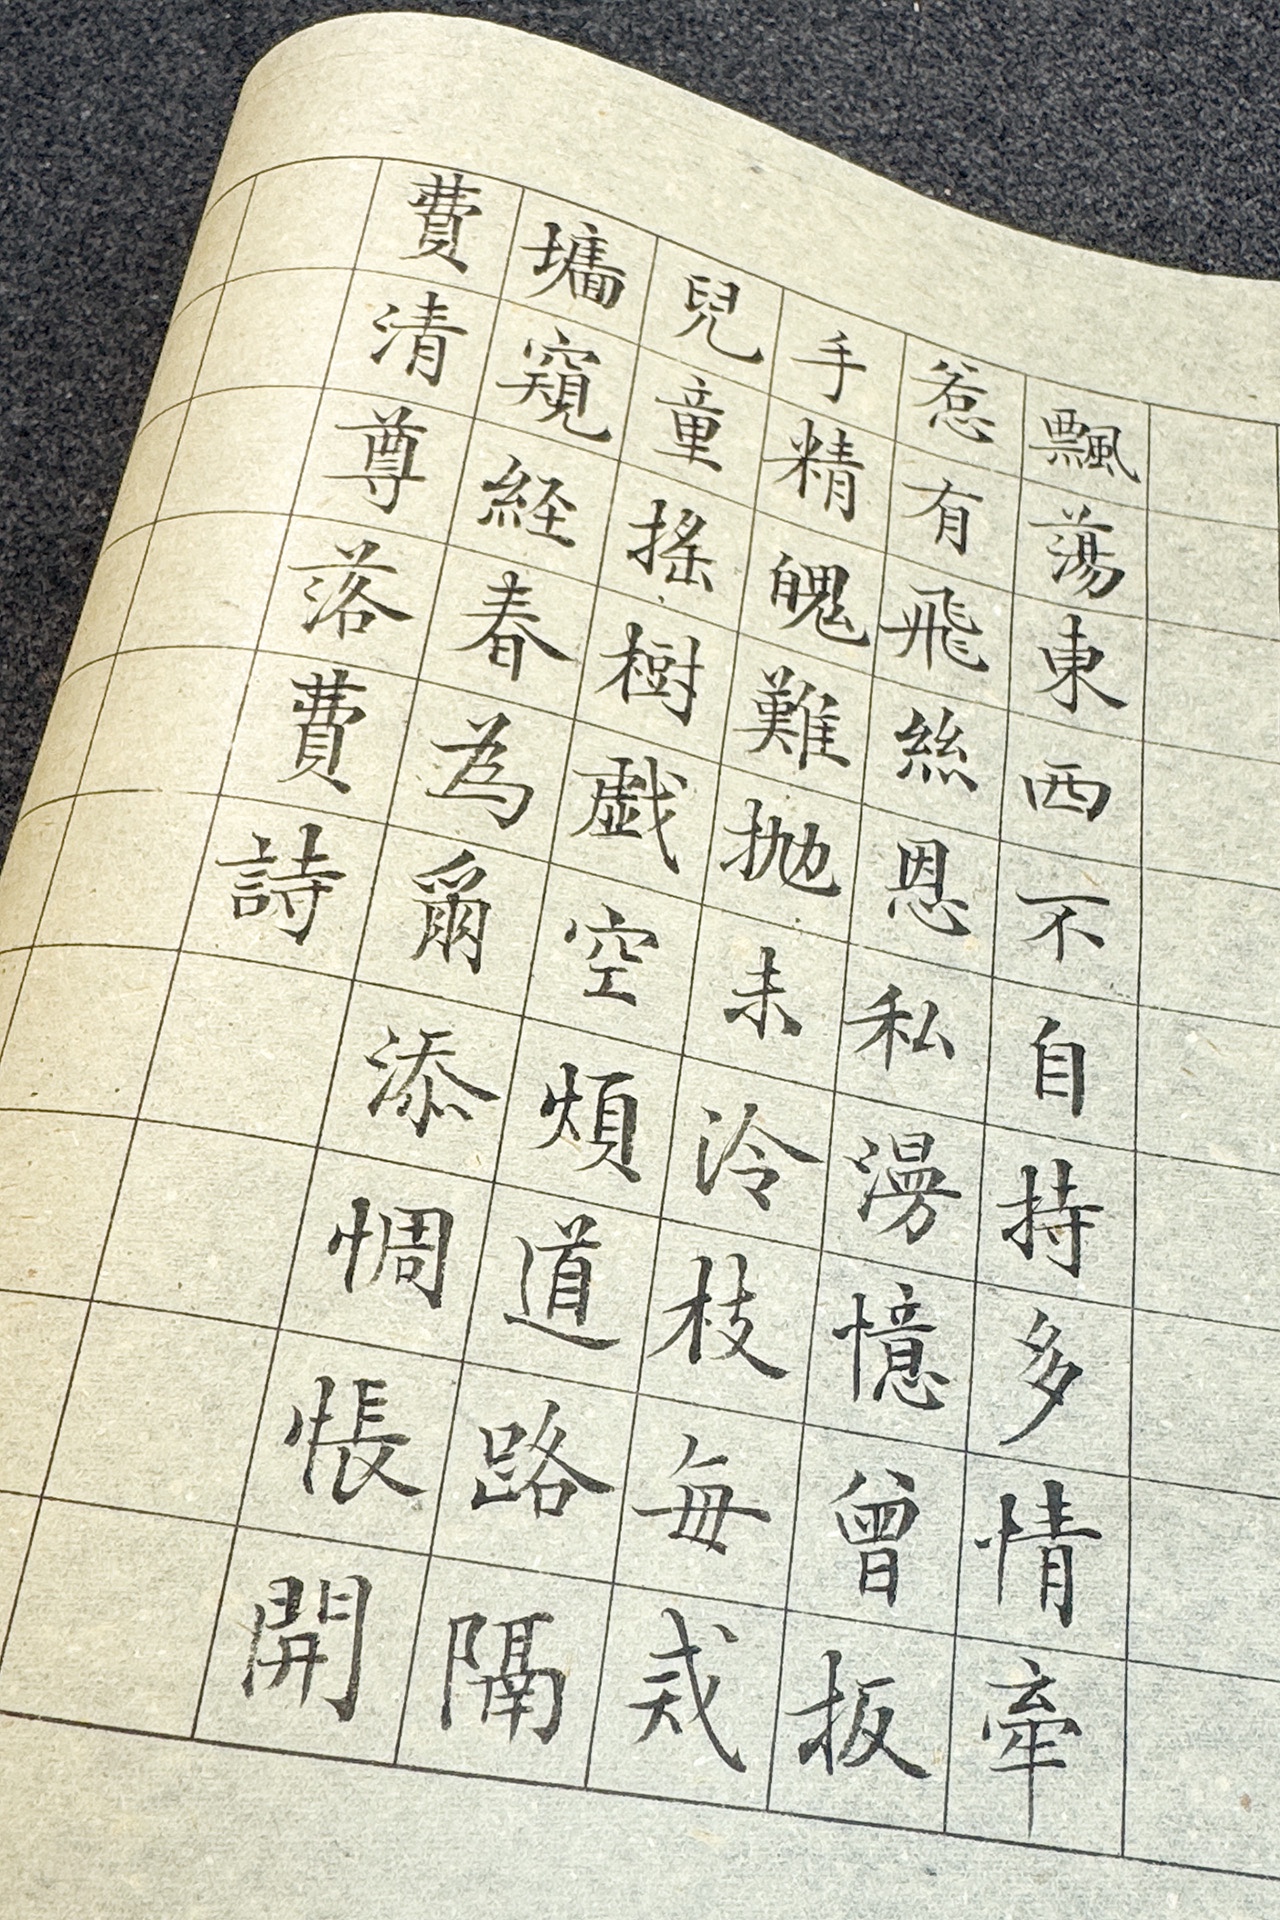 飄蕩東西不自持多情牽
惹有飛絲恩私漫憶曾扳
手精魄難拋未泠枝每戒
兒童搖樹戯空煩道路隔
墻窺経春為爾添惆悵開
費清尊落費詩